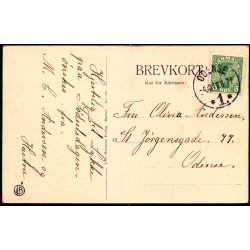 Hjertelig til Lykke
paa Fødselsdagen
ønskes fra
M. C. Andersen og
Hustru
BREVKORT
(Kun for Adressen)
ODENSE
1
Fru Olivia Andersen
St Jørgensgade. 77.
Odense